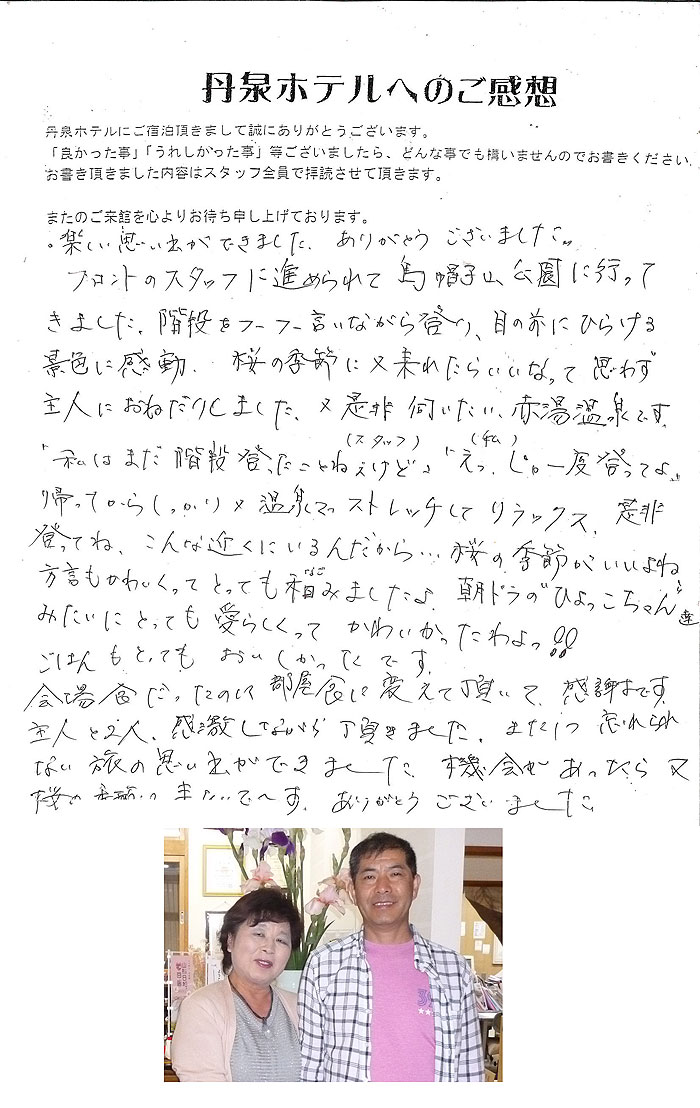 丹泉ホテルへのご感想
丹泉ホテルにご宿泊頂きまして誠にありがとうございます。
「良かった事」「うれしかった事」等ございましたら、どんな事でも構いませんのでお書きください。
お書き頂きました内容はスタッフ全員で拝読させて頂きます。
またのご来館を心よりお待ち申し上げております。
・楽しい思い出ができました、ありがとうございました。
フロントのスタッフに進められて烏帽子山公園に行って
きました、階段をフーフー言いながら登り、目の前にひらける
景色に感動、桜の季節に又来れたらいいなって思わず
主人におねだりしました、又是非伺いたい、赤湯温泉です。
(スタッフ) (私)
「私はまだ階段登ったことねぇけど」「えっ、じゃ一度登ってよ」
帰ってからしっかり又温泉でストレッチしてリラックス、是非
登ってね、こんな近くにいるんだから…桜の季節がいいよね
方言もかわいくってとっても和みましたよ 朝ドラの"ひよっこちゃん"達
みたいにとっても愛らしくってかわいかったわよっ!!
ごはんもとってもおいしかったです。
会場食だったのに部屋食に変えて頂いて、感謝です。
主人と2人、感激しながら頂きました、また1つ忘れられ
ない旅の思い出ができました、機会があったら又
桜の 来たいで〜す、ありがとうございました。